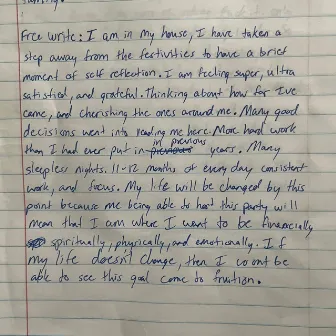 Free write: I am in my house, I have taken a
step away from the festivities to have a brief
moment of self reflection. I am feeling super, ultra
satisfied, and grateful. Thinking about how far I've
came, and cherishing the ones around me. Many good
decisions went into leading me here. More hard work
than I had ever put in in previous years. Many
sleepless nights. 11-12 months of every day consistent
work, and focus. My life will be changed by this
point because me being able to host this party will
mean that I am where I want to be financially
spiritually, physically, and emotionally. If
my life doesn't change, then I wont be
able to see this goal come to fruition.